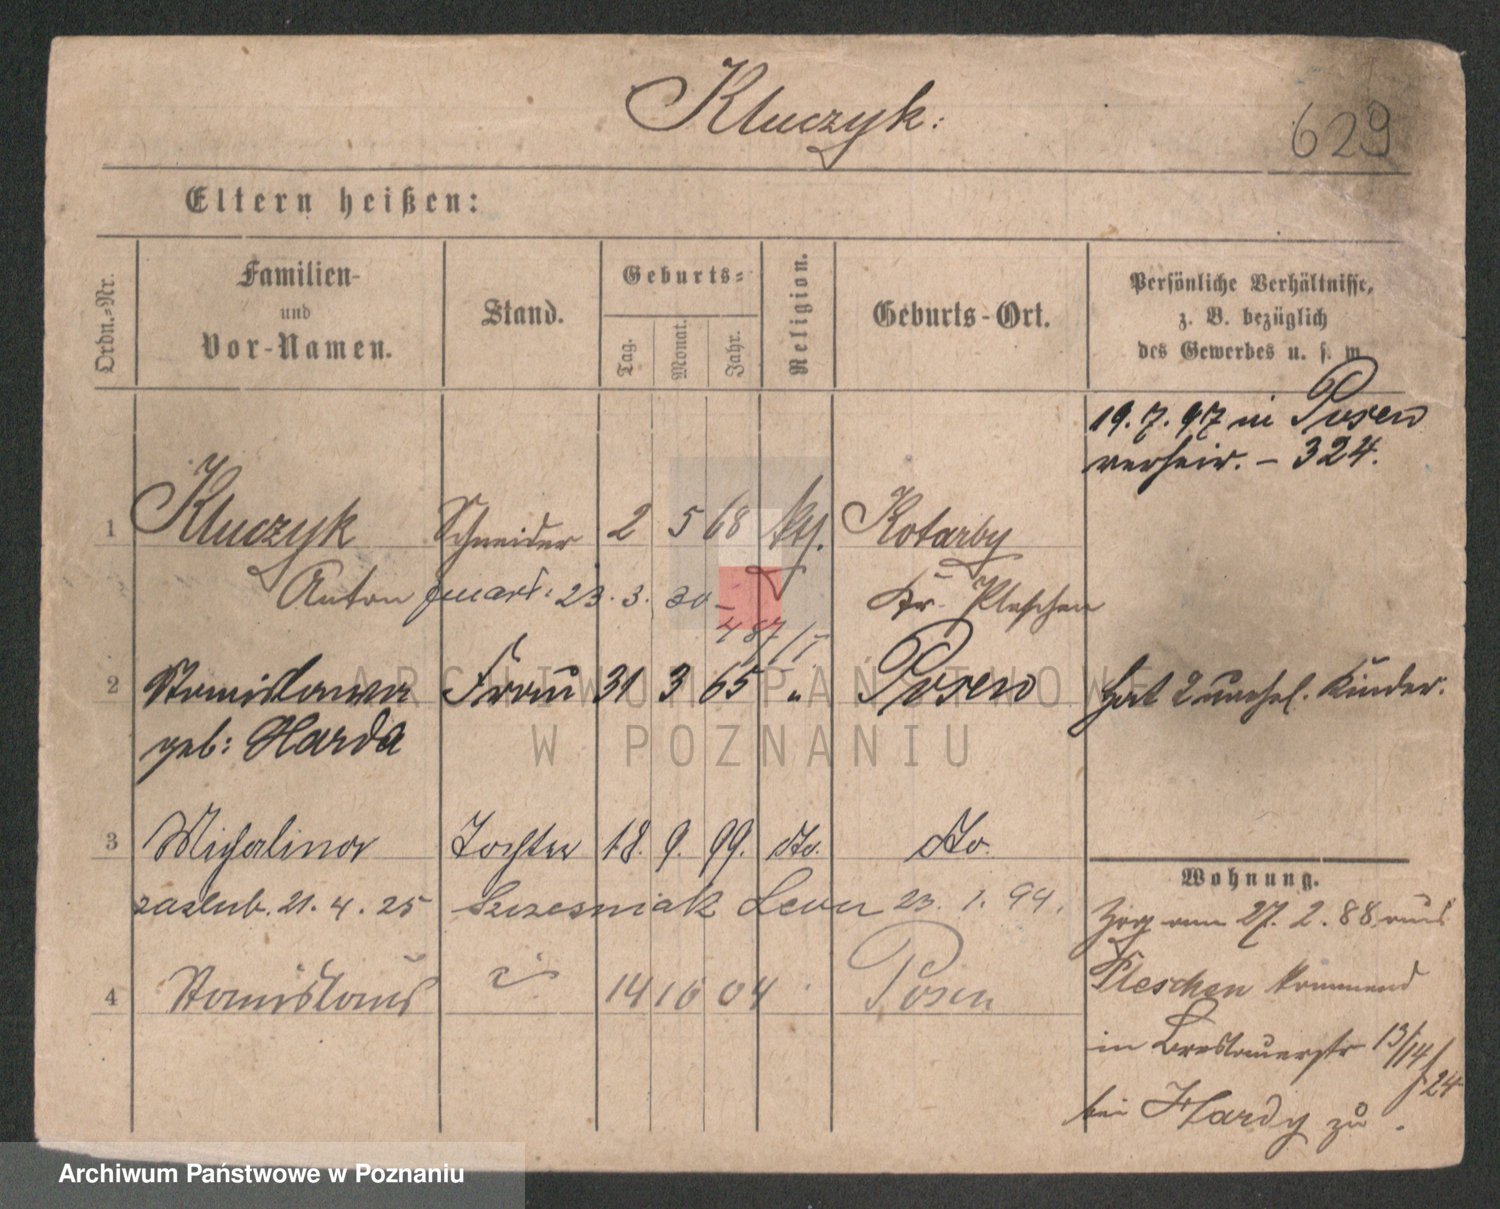 Kluczyk:
629
Eltern heißen:
Ordn.-Nr.
Familien-
und
Vor-Namen.
Stand.
Geburts-
Tag.
Monat.
Jahr.
Religion.
Geburts-Ort.
Persönliche Verhältnisse,
z. B. bezüglich
des Gewerbes u. s. w.
19. 7. 97 in Posen
verheir. - 324.
1 Kluczyk Schneider 2 5 68 kth. Kotarby
Anton zmarł. 23. 3. 30 Kr. Pleschen
487/I
2 Stanislawa Frau 31 3 65 " Posen hat 2 unehel. Kinder.
geb: Harda
3 Michalina Tochter 18. 9. 99. dto. dto.
zaślub. 21. 4. 25 Szczesniak Leon 23. 1. 94.
4 Stanislaus 14 10 04 Posen
Wohnung.
Zog am 27. 2. 88 aus
Pleschen kommend
in Breslauerstr 13/14
f 24
bei Hardy zu.
ARCHIWUM PAŃSTWOWE
W POZNANIU
Archiwum Państwowe w Poznaniu